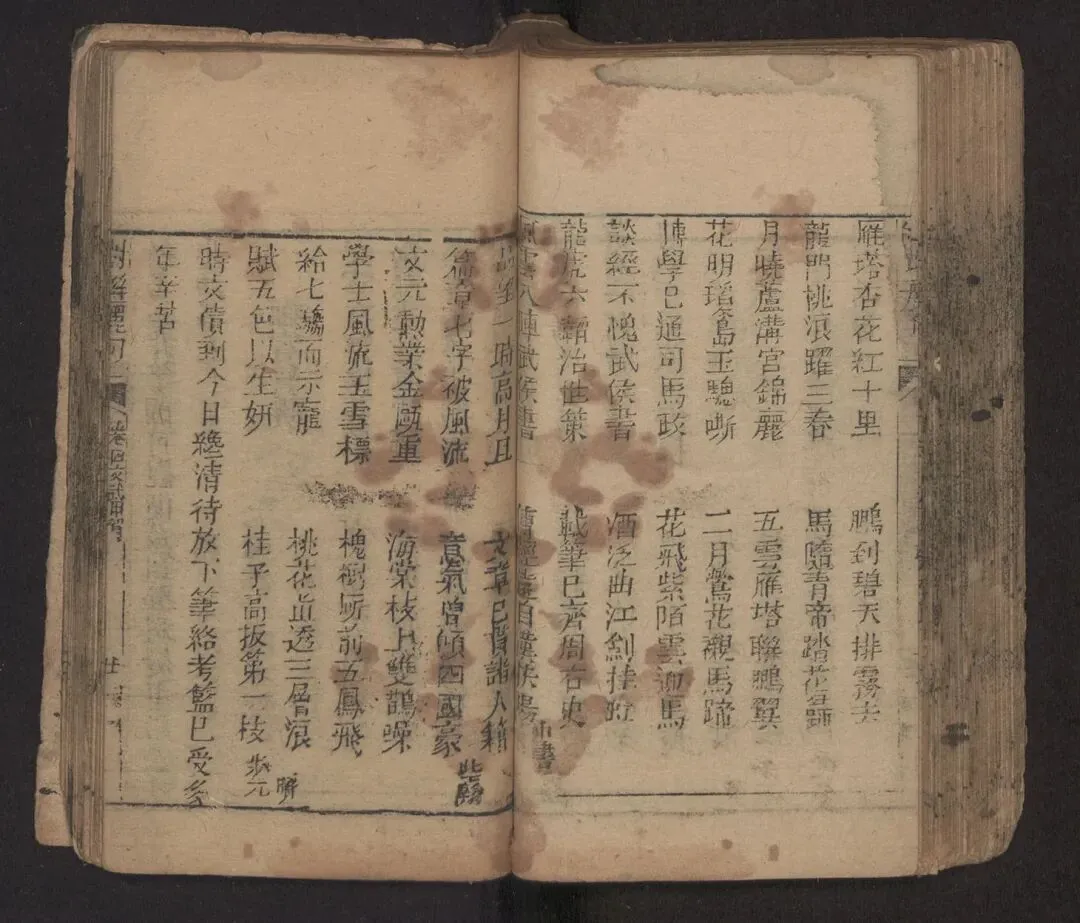 雁塔杏花紅十里 鵬到碧天排霧去
龍門桃浪躍三春 馬隨青帝踏花歸
月曉蘆溝宮錦麗 五雲雁塔聯鵬翼
花明瑤島玉驄嘶 二月鶯花襯馬蹄
博學已通司馬政 花飛紫陌雲迎馬
談經不愧武侯書 酒泛曲江劍挂虹
龍虎六韜治世策 載筆已齊周右史
八陣武侯書 中書
一時高月旦 文章已贊諸人籍
篇章七字破風流 意氣曾傾四國豪
文元勳業金甌重 海棠枝上雙鵲噪
學士風流玉雪標 槐樹所前五鳳飛
給七驄而示寵 桃花直透三層浪
賦五色以生妍 桂子高扳第一枝
時文債到今日纔清待放下筆絡考籃已受多
年辛苦